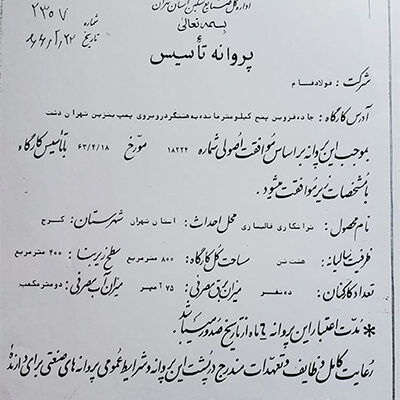 اداره کل صنایع سنگین استان تهران
بسمه تعالی
شماره ۲۳۵۷
تاریخ
پروانه تأسیس
شرکت : فولادفام
آدرس کارگاه : جاده قزوین پنج کیلومتر مانده به هشتگرد روبروی پمپ بنزین تهران دشت
بموجب این پروانه بر اساس موافقت اصولی شماره ۱۸۲۲۴ مورخ ۶۳/۴/۱۸ با تأسیس کارگاه
با مشخصات زیر موافقت میشود.
نام محصول : تراشکاری قالبسازی محل احداث : استان تهران شهرستان : کرج
ظرفیت سالیانه : هشت تن مساحت کل کارگاه : ۸۰۰ مترمربع سطح زیر بنا : ۴۰۰ مترمربع
تعداد کارکنان : ده نفر میزان برق مصرفی : ۷۵ آمپر میزان آب مصرفی : دو مترمکعب
* مدت اعتبار این پروانه ۶ ماه از تاریخ صدور میباشد
رعایت کامل وظایف و تعهدات مندرج در پشت این پروانه و شرایط عمومی پروانه های صنعتی برای دارنده